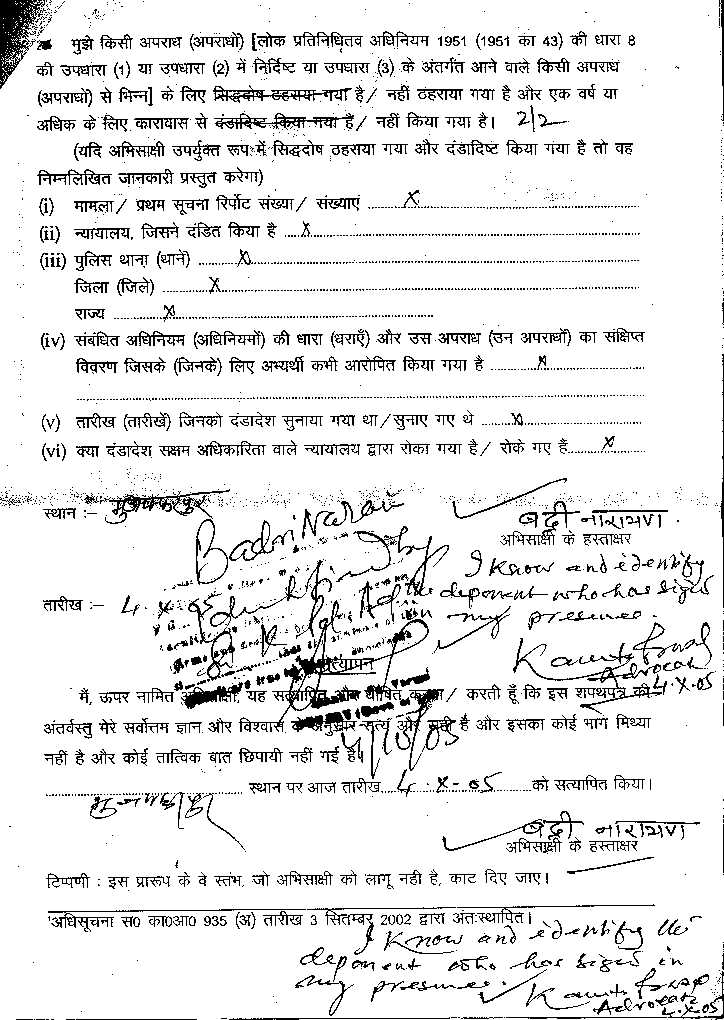 2. मुझे किसी अपराध (अपराधों) [लोक प्रतिनिधितव अधिनियम 1951 (1951 का 43) की धारा 8
की उपधारा (1) या उपधारा (2) में निर्दिष्ट या उपधारा (3) के अंतर्गत आने वाले किसी अपराध
(अपराधों) से भिन्न] के लिए सिद्धदोष ठहराया गया है/ नहीं ठहराया गया है और एक वर्ष या
अधिक के लिए कारावास से दंडादिष्ट किया गया है/ नहीं किया गया है। 2/2
(यदि अभिसाक्षी उपर्युक्त रूप में सिद्धदोष ठहराया गया और दंडादिष्ट किया गया है तो वह
निम्नलिखित जानकारी प्रस्तुत करेगा)
(i) मामला/ प्रथम सूचना रिर्पोट संख्या/ संख्याएं ........ X ........
(ii) न्यायालय, जिसने दंडित किया है ........ X ........
(iii) पुलिस थाना (थाने) ........ X ........
जिला (जिले) ........ X ........
राज्य ........ X ........
(iv) संबंधित अधिनियम (अधिनियमों) की धारा (धराएँ) और उस अपराध (उन अपराधों) का संक्षिप्त
विवरण जिसके (जिनके) लिए अभ्यर्थी कभी आरोपित किया गया है ........ X ........
(v) तारीख (तारीखें) जिनको दंडादेश सुनाया गया था/सुनाए गए थे ........ X ........
(vi) क्या दंडादेश सक्षम अधिकारिता वाले न्यायालय द्वारा रोका गया है/ रोके गए हैं ........ X ........
स्थान :- मुजफ्फरपुर
Badri Narain
बद्री नारायण
अभिसाक्षी के हस्ताक्षर
I know and identify
the deponent who has signed
in my presence.
तारीख :- 4-X-05
Advocate
4-X-05
सत्यापन
मैं, ऊपर नामित अभिसाक्षी, यह सत्यापित और घोषित करता/ करती हूँ कि इस शपथपत्र की
अंतर्वस्तु मेरे सर्वोत्तम ज्ञान और विश्वास के अनुसार सत्य और सही है और इसका कोई भाग मिथ्या
नहीं है और कोई तात्विक बात छिपायी नहीं गई है।
4/10/05
मुजफ्फरपुर स्थान पर आज तारीख 4-X-05 को सत्यापित किया।
बद्री नारायण
अभिसाक्षी के हस्ताक्षर
टिप्पणी : इस प्रारूप के वे स्तंभ, जो अभिसाक्षी को लागू नही है, काट दिए जाए।
अधिसूचना स0 का0आ0 935 (अ) तारीख 3 सितम्बर 2002 द्वारा अंतःस्थापित।
I know and identify the
deponent who has signed in
my presence.
Advocate
4-X-05